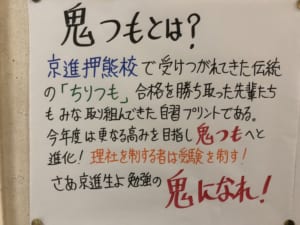 鬼つもとは?
京進押熊校で受けつがれてきた伝統
の「ちりつも」合格を勝ち取った先輩たち
もみな取り組んできた自習プリントである。
今年度は更なる高みを目指し鬼つもへと
進化!理社を制する者は受験を制す!
さあ京進生よ勉強の鬼になれ!